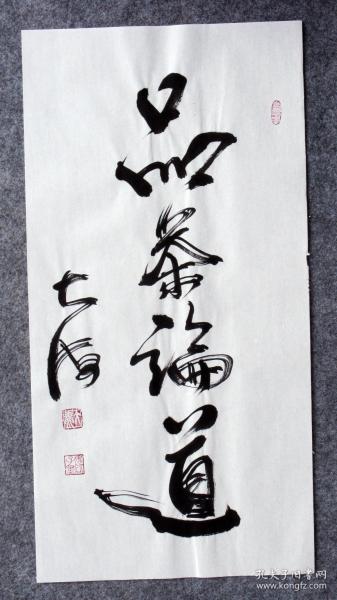 品茶論道
大海
孔夫子旧书网
www.kongfz.com